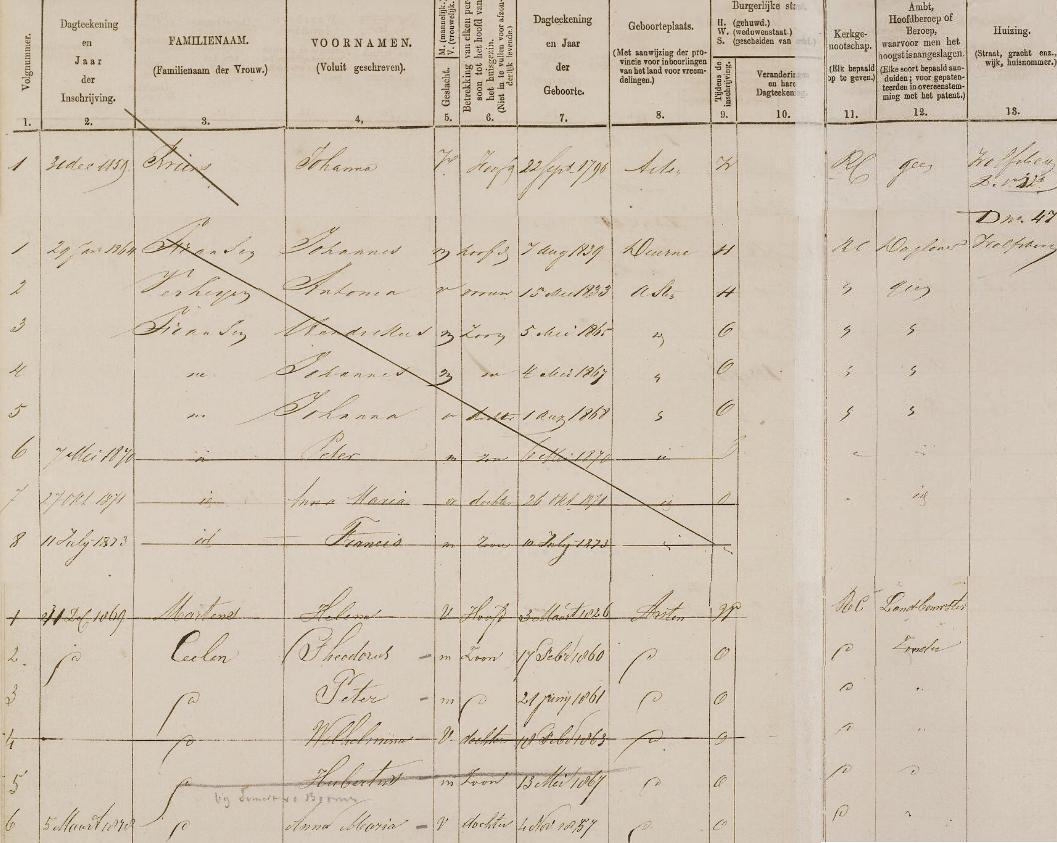 Volgnummer. Dagteekening en Jaar der Inschrijving. FAMILIENAAM. (Familienaam der Vrouw.) VOORNAMEN. (Voluit geschreven.) Geslacht. M. (mannelijk.) V. (vrouwelijk.) Betrekking van elken persoon tot het hoofd van het huisgezin. (Niet in te vullen voor afzonderlijk levende.) Dagteekening en Jaar der Geboorte. Geboorteplaats. (Met aanwijzing der provincie voor inboorlingen van het land voor vreemdelingen.) Burgerlijke sta H. (gehuwd.) W. (weduwenstaat.) S. (gescheiden van Tijdens de inschrijving. Veranderin en hare Dagteeken Kerkgenootschap. (Elk bepaald op te geven.) Ambt, Hoofdberoep of Beroep, waarvoor men het hoogst is aangeslagen. (Elke soort bepaald aanduiden; voor gepatenteerden in overeenstemming met het patent.) Huizing. (Straat, gracht enz., wijk, huisnommer.)
1. 2. 3. 4. 5. 6. 7. 8. 9. 10. 11. 12. 13.
1 21 dec 1859 Johanna V. Hoofd 22 Sept. 1796 Asten W RC geen
D no. 47
1 29 Jan 1864 Fransen Johannes m hoofd 7 aug 1839 Deurne H RC Dagloner Wolfsberg
2 Verheyen Antonia v vrouw 15 Mei 1833 Asten H " geen
3 Fransen Hendrikus m Zoon 5 Mei 1865 " O " "
4 Johannes m 4 Mei 1867 " O " "
5 Johanna v dochter 1 aug 1868 " O " "
6 7 Mei 1870 Peter m zoon 6 Mei 1870
7 27 Okt 1871 id Anna Maria v dochter 26 Okt. 1871 id O id
8 11 July 1873 id Francis m Zoon 10 July 1873
1 Martens Helena V Hoofd 3 Maart 1826 Asten W RC Landbouwster
2. Ceelen Theodorus m Zoon 17 Feb 1860 O Zonder
3 Peter m 21 Juny 1861 O
4 Wilhelmina V dochter 18 Feb 1863 O
5 Hubertus m Zoon 13 Mei 1867 O
6 5 Maart 1878 Anna Maria V dochter 4 Nov 1857 O